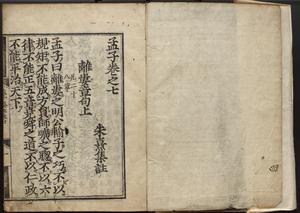 孟子卷之七
朱熹集註
離婁章句上
凡二十八章
孟子曰離婁之明公輸子之巧不以
規矩不能成方員師曠之聰不以六
律不能正五音堯舜之道不以仁政
不能平治天下